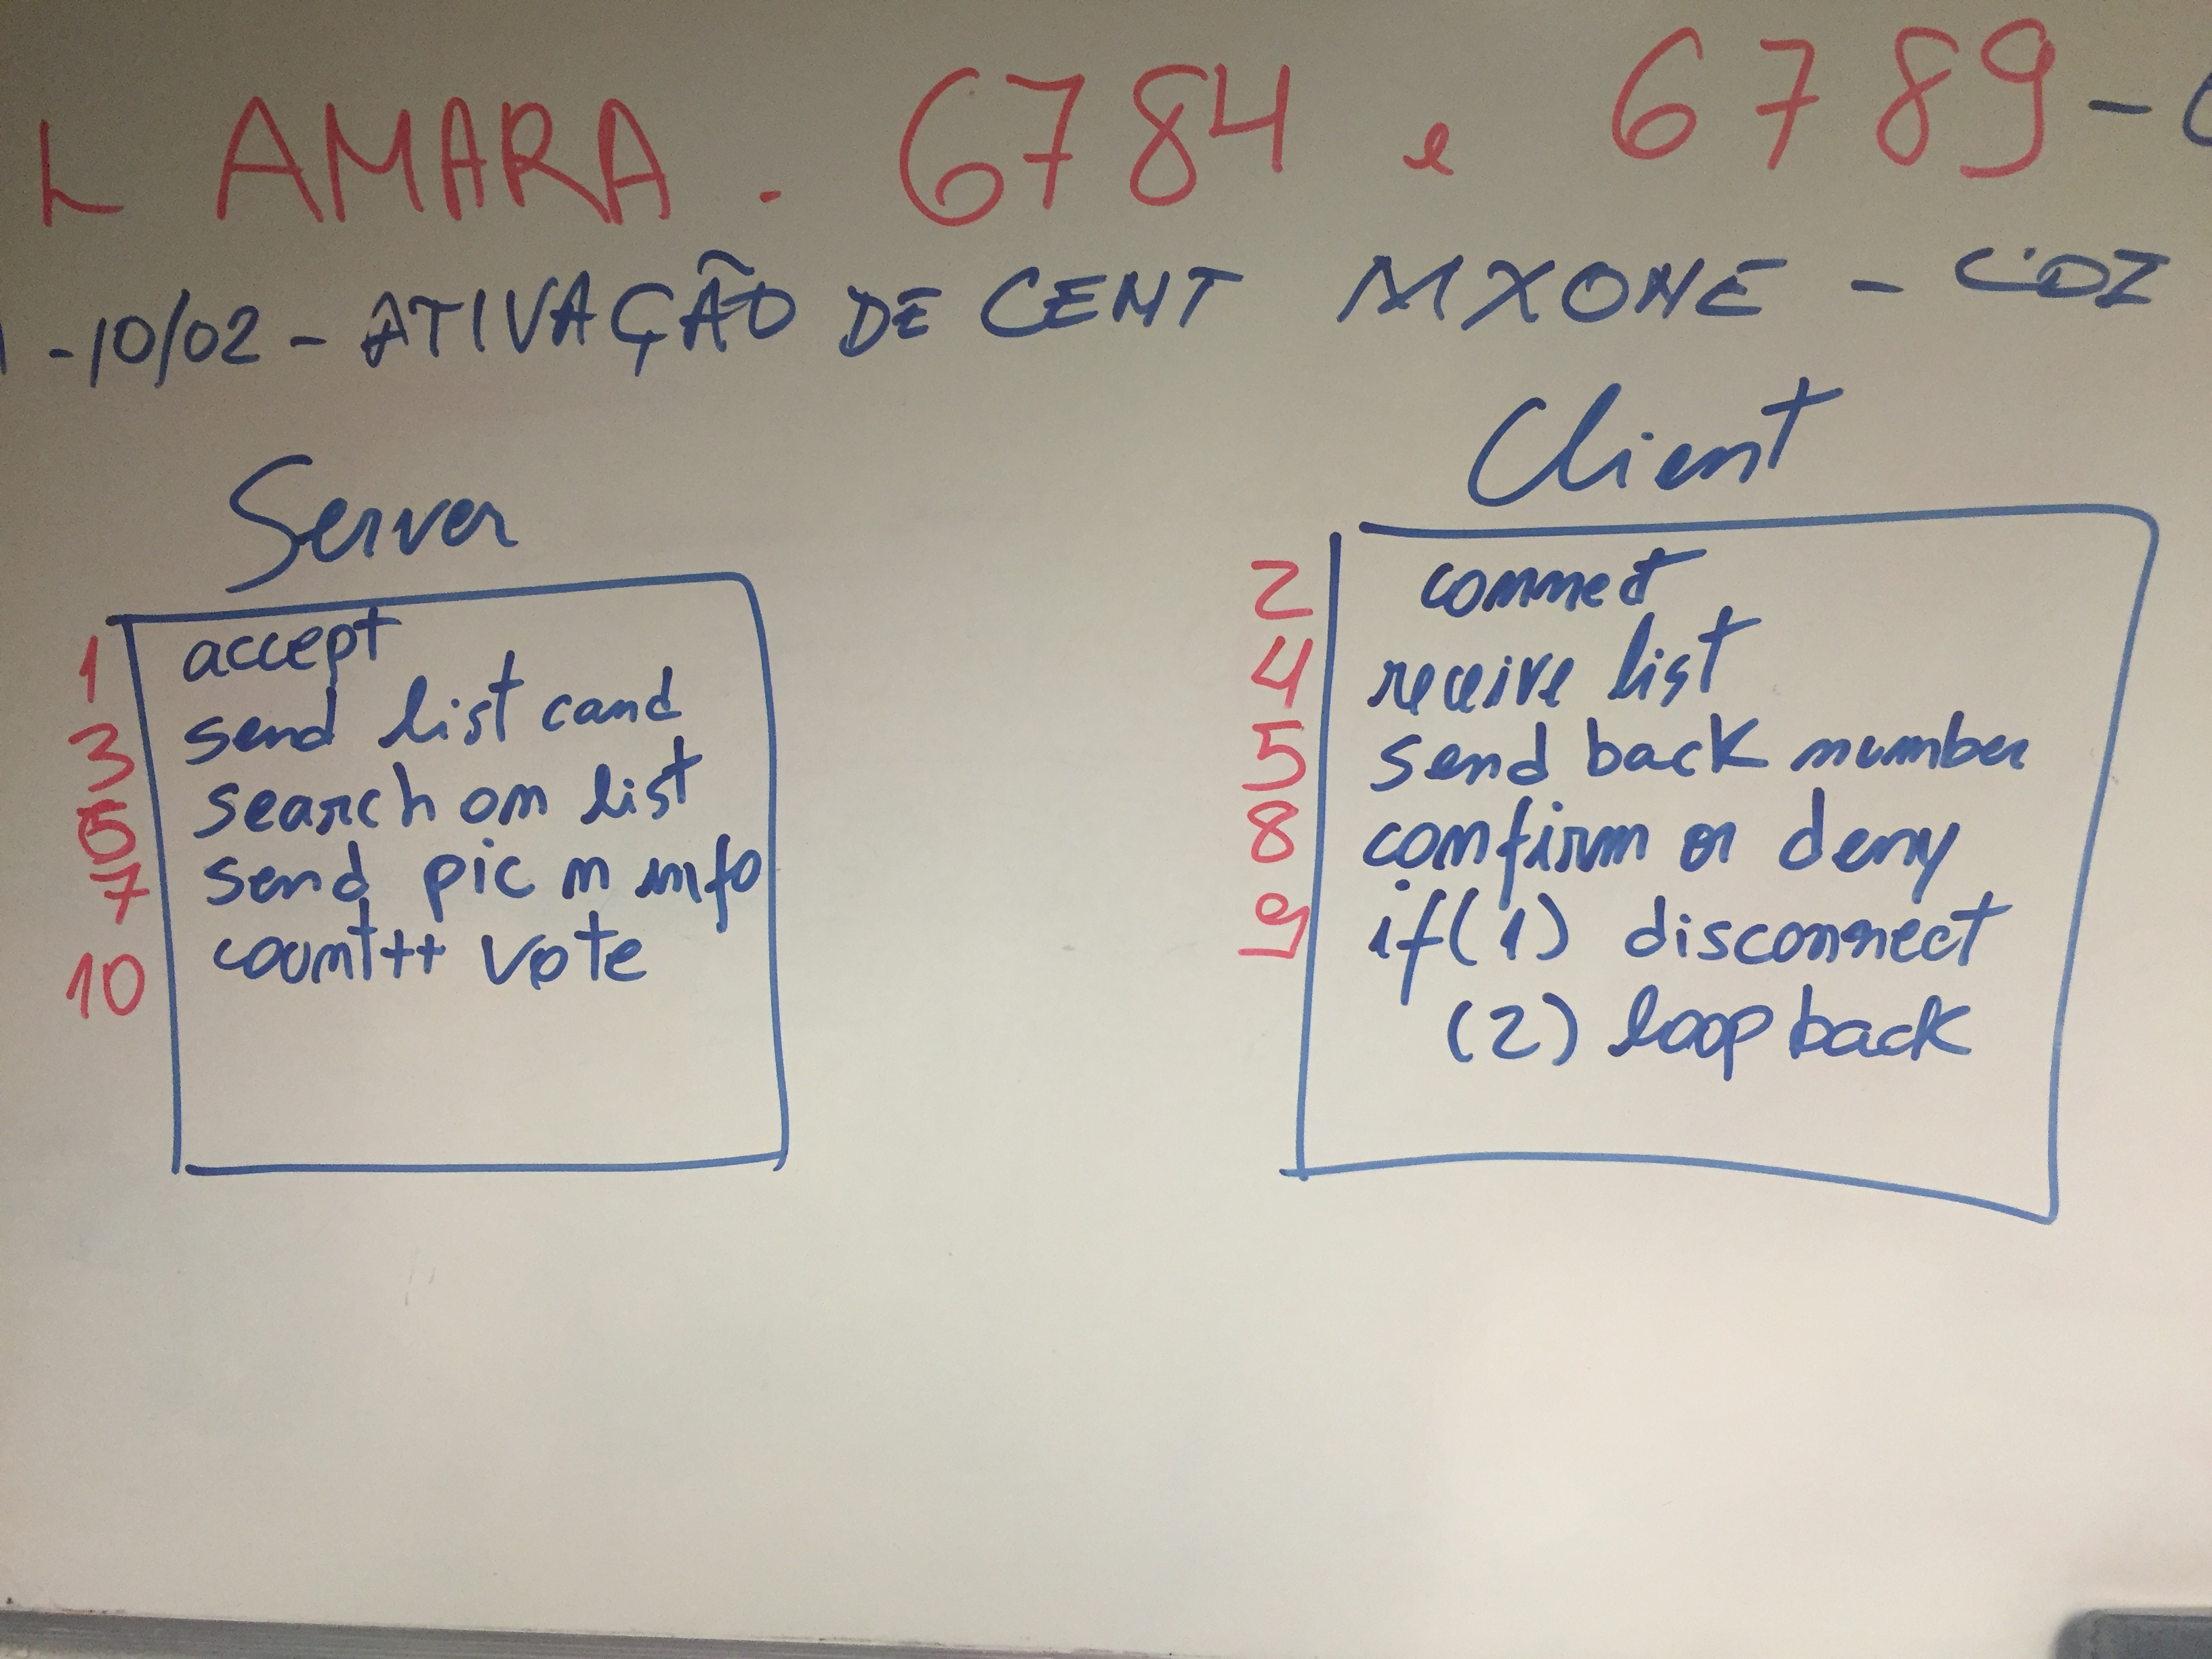 L AMARA. 6784 e 6789-
-10/02 - ATIVAÇÃO DE CENT MXONE - CDI
Server
1 accept
3 send list cand
6 search on list
7 send pic n info
10 count++ vote
Client
2 connect
4 receive list
5 send back number
8 confirm or deny
9 if(1) disconnect
(2) loop back